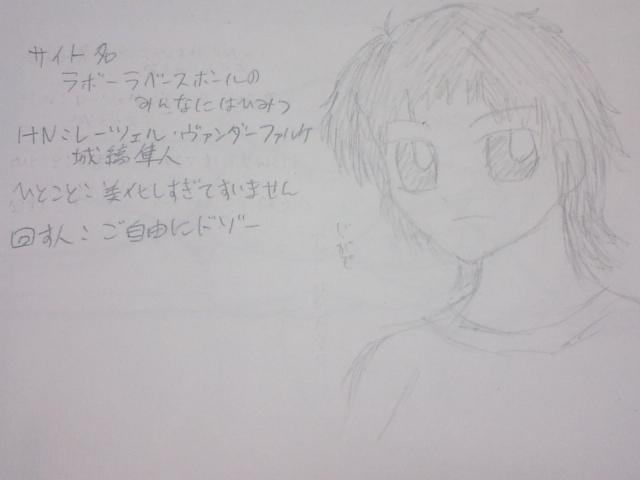 サイト名
ラボーラベースボールの
みんなにはひみつ
HN:レーツェル・ヴァンダーファルケ
城縞隼人
ひとこと:美化しすぎてすいません
回す人:ご自由にドゾー
じがぞ